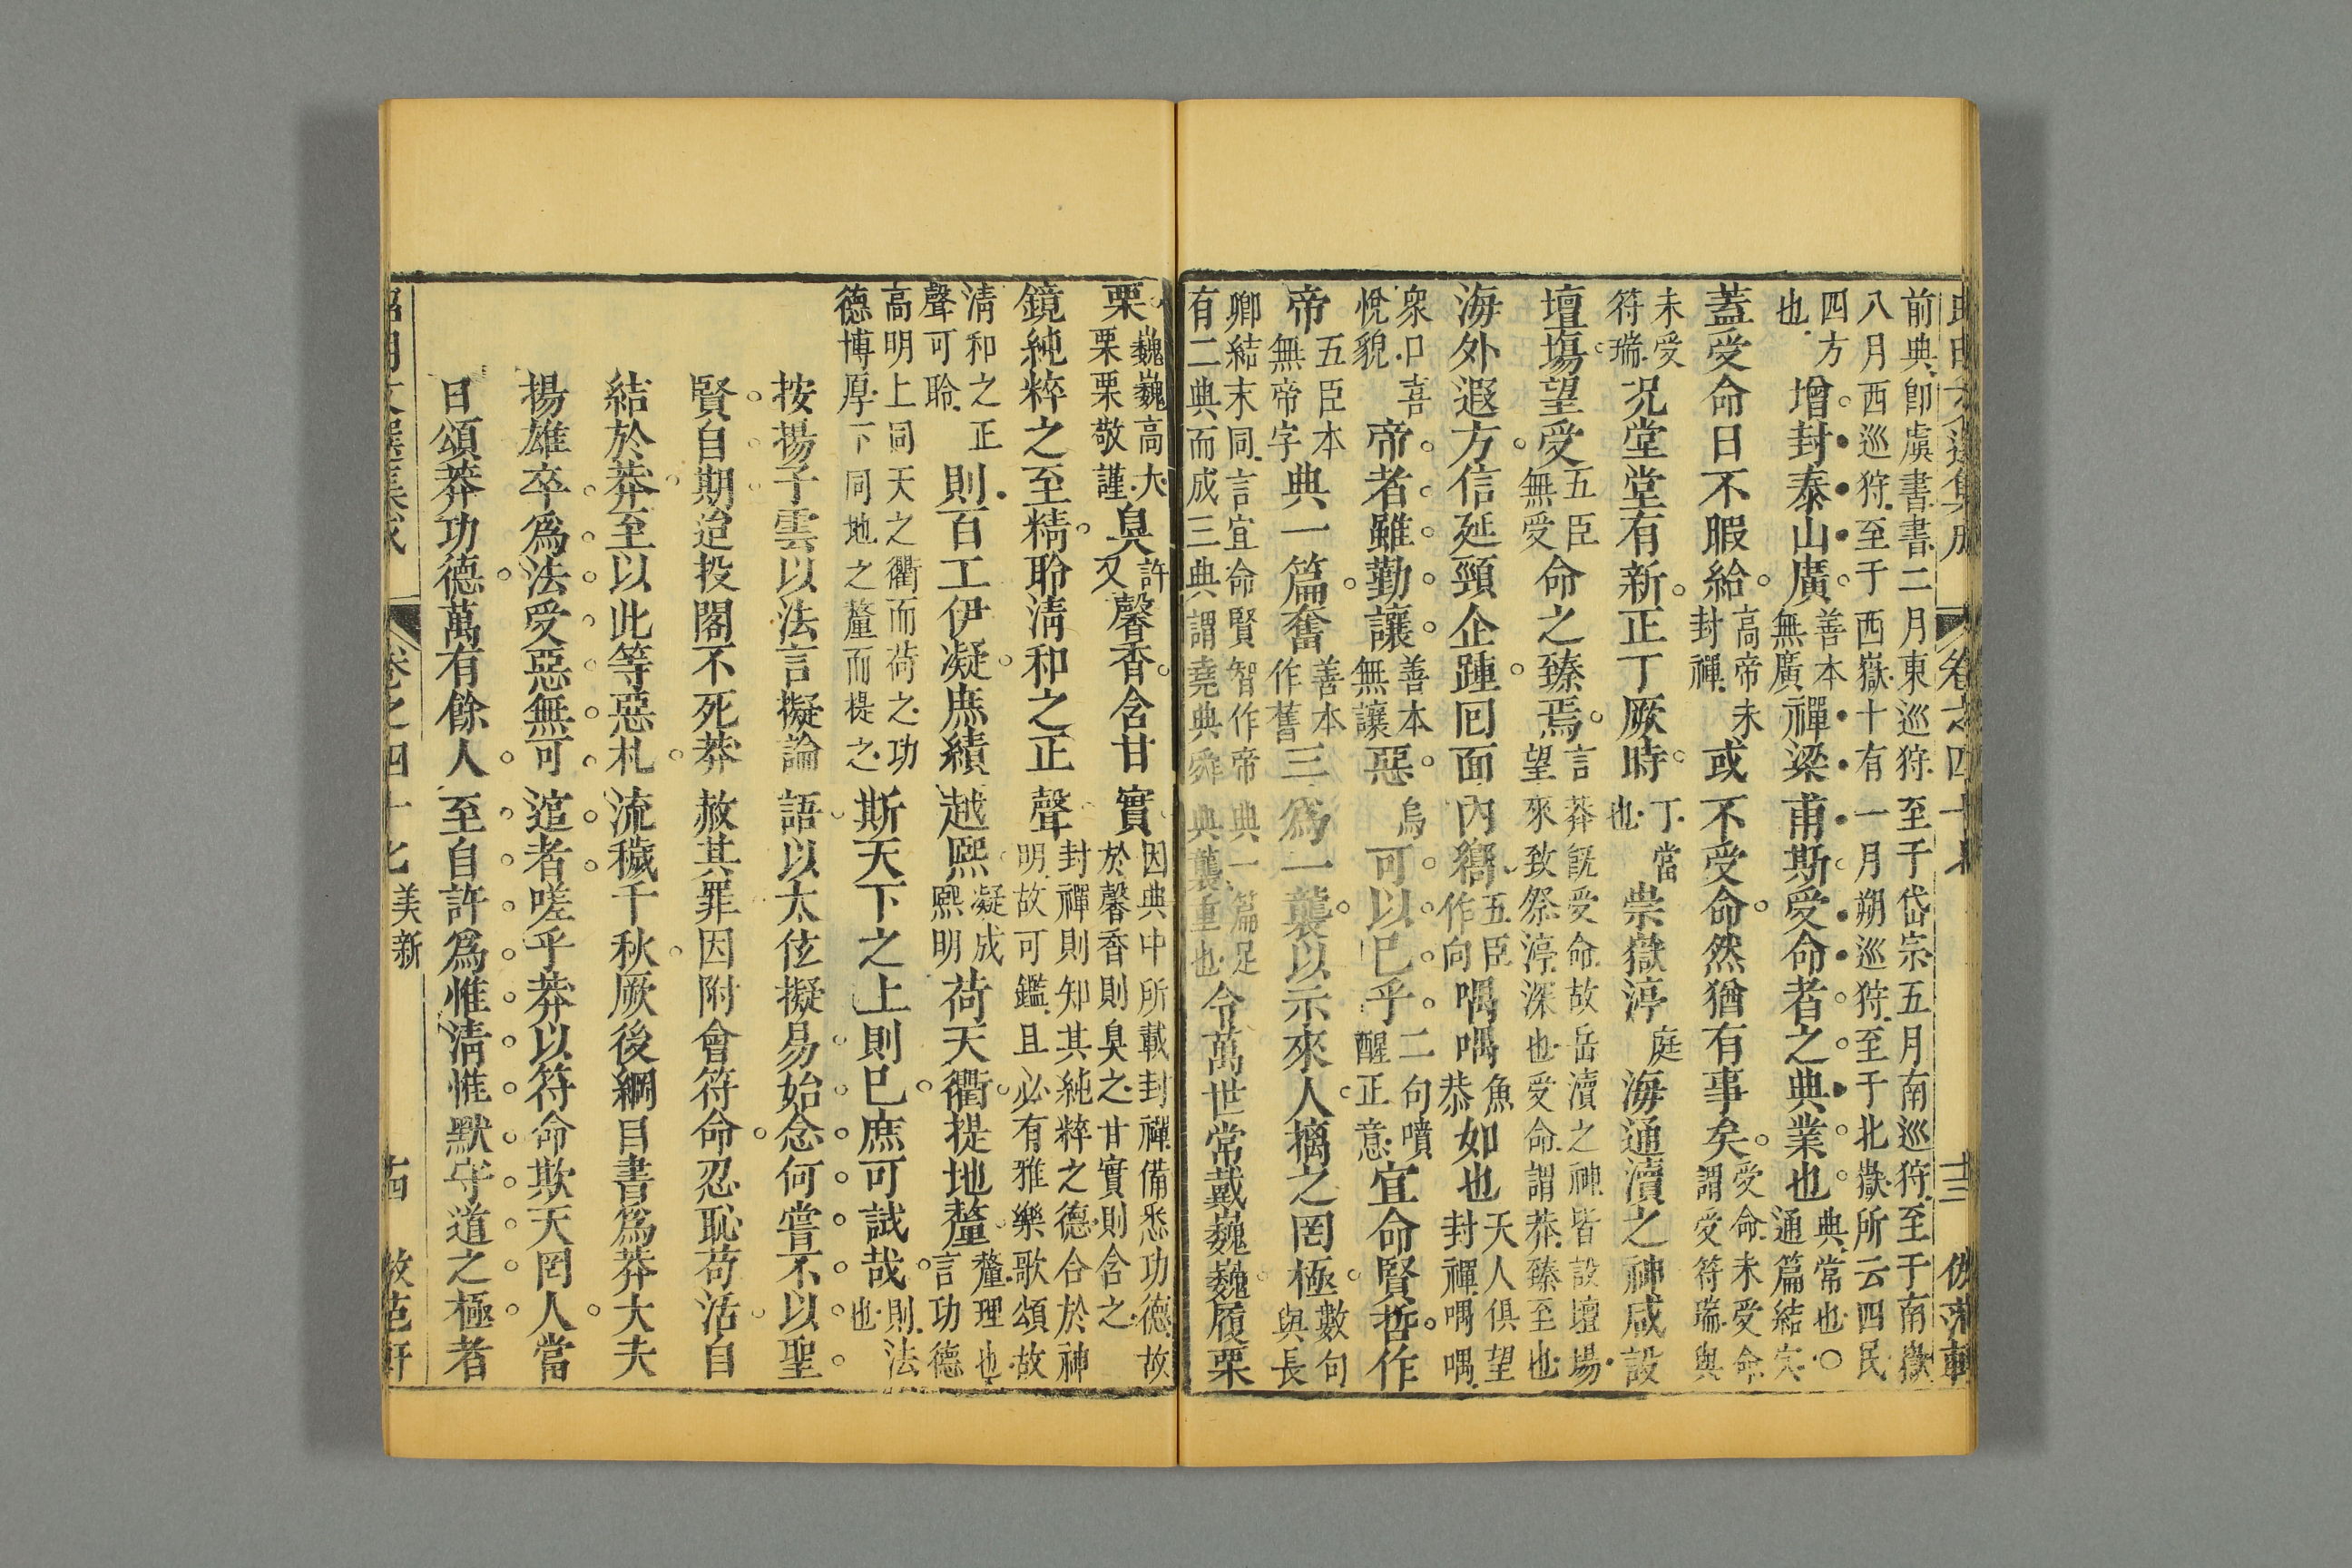 文選集成 卷之四十七 十三 倣范軒
前典卽虞書書二月東巡狩至于岱宗五月南巡狩至于南嶽
八月西巡狩至于西嶽十有一月朔巡狩至于北嶽所云四民
四方也增封泰山廣善本無廣禪梁甫斯受命者之典業也典常也○通篇結穴
蓋受命日不暇給高帝未封禪或不受命然猶有事矣受命未受命謂受符瑞與
未受符瑞况堂堂有新正丁厥時丁當也崇嶽渟庭海通瀆之神咸設
壇塲望受五臣無受命之臻焉言莽旣受命故岳瀆之神皆設壇場望來致祭渟深也受命謂莽臻至也
海外遐方信延頸企踵囘面內嚮五臣作向喁喁魚恭如也天人俱望封禪喁喁
衆口喜悅貌帝者雖勤讓善本無讓惡烏可以已乎二句噴醒正意宜命賢哲作
帝五臣本無帝字典一篇奮善本作舊三爲一襲以示來人摛之罔極數句與長
卿結末同言宜命賢智作帝典一篇足有二典而成三典謂堯典舜典襲重也令萬世常戴巍巍履栗
栗巍巍高大栗栗敬謹臭許又馨香含甘實因典中所載封禪備悉功德故於馨香則臭之甘實則含之
鏡純粹之至精聆淸和之正聲封禪則知其純粹之德合於神明故可鑑且必有雅樂歌頌故
淸和之正聲可聆則百工伊凝庶績越熙凝成熙明荷天衢提地釐釐理也言功德
高明上同天之衢而荷之功德博厚下同地之釐而提之斯天下之上則已庶可試哉則法也
按揚子雲以法言擬論語以太伭擬易始念何嘗不以聖
賢自期迨投閣不死莽赦其罪因附會符命忍恥苟活自
結於莽至以此等惡札流穢千秋厥後綱目書爲莽大夫
揚雄卒爲法受惡無可逭者嗟乎莽以符命欺天罔人當
日頌莽功德萬有餘人至自許爲惟淸惟默守道之極者
昭明文選集成 卷之四十七 美新 十四 倣范軒